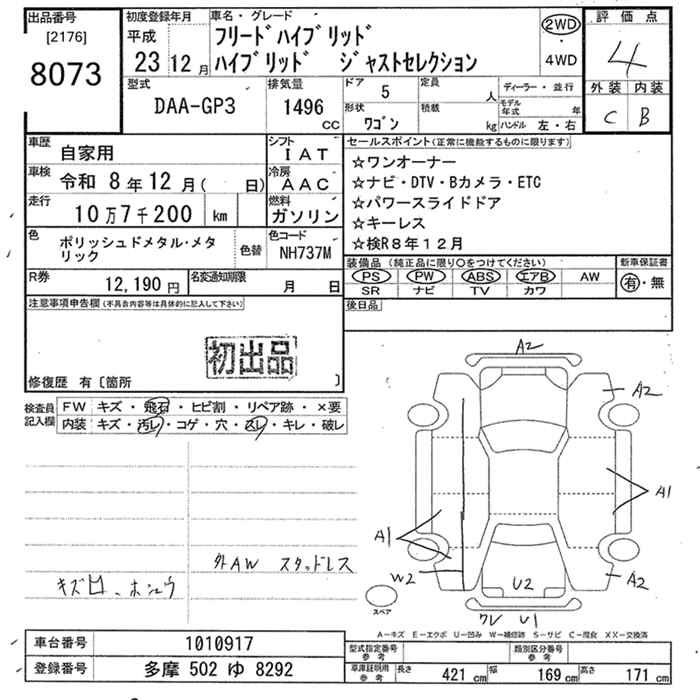 出品番号
[2176]
8073
初度登録年月
平成
23 12 月
車名・グレード
フリードハイブリッド
ハイブリッド ジャストセレクション
2WD
・
4WD
評価点
4
外装 内装
C B
型式
DAA-GP3
排気量
1496
CC
ドア 5
形状
ワゴン
定員
人
積載
kg
ディーラー・並行
モデル年式 年
ハンドル 左・右
車歴
自家用
シフト
IAT
車検
令和 8年12月( 日)
冷房
AAC
走行
10万7千200 km
燃料
ガソリン
色
ポリッシュドメタル・メタ
リック
色替
色コード
NH737M
R券
12,190円
名変通知期限
月 日
セールスポイント(正常に機能するものに限ります)
☆ワンオーナー
☆ナビ・DTV・Bカメラ・ETC
☆パワースライドドア
☆キーレス
☆検R8年12月
装備品(純正品に限り○をつけてください)
PS PW ABS エアB AW
SR ナビ TV カワ
新車保証書
有・無
後日品
注意事項申告欄(不具合内容等は具体的に記入して下さい)
初出品
修復歴 有〔箇所 〕
検査員
記入欄
FW キズ・飛石・ヒビ割・リペア跡・×要
内装 キズ・汚レ・コゲ・穴・スレ・キレ・破レ
外AW スタッドレス
A2
A2
A1
A1
W2
A2
U2
U1
スペア
A-キズ E-エクボ U-凹み W-補修跡 S-サビ C-腐食 XX-交換済
車台番号 1010917
登録番号 多摩 502 ゆ 8292
型式指定番号
参考
類別区分番号
参考
車庫証明用
参考
長さ 421 cm 幅 169 cm 高さ 171 cm